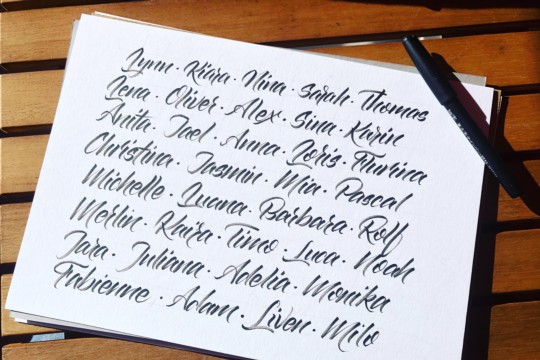 Lynn · Kiara · Nina · Sarah · Thomas
Lena · Oliver · Alex · Sina · Karin
Anita · Jael · Anna · Loris · Flurina
Christina · Jasmin · Mia · Pascal
Michelle · Luana · Barbara · Rolf
Merlin · Khira · Timo · Luca · Noah
Jara · Juliana · Adelia · Monika
Fabienne · Adam · Liven · Milo